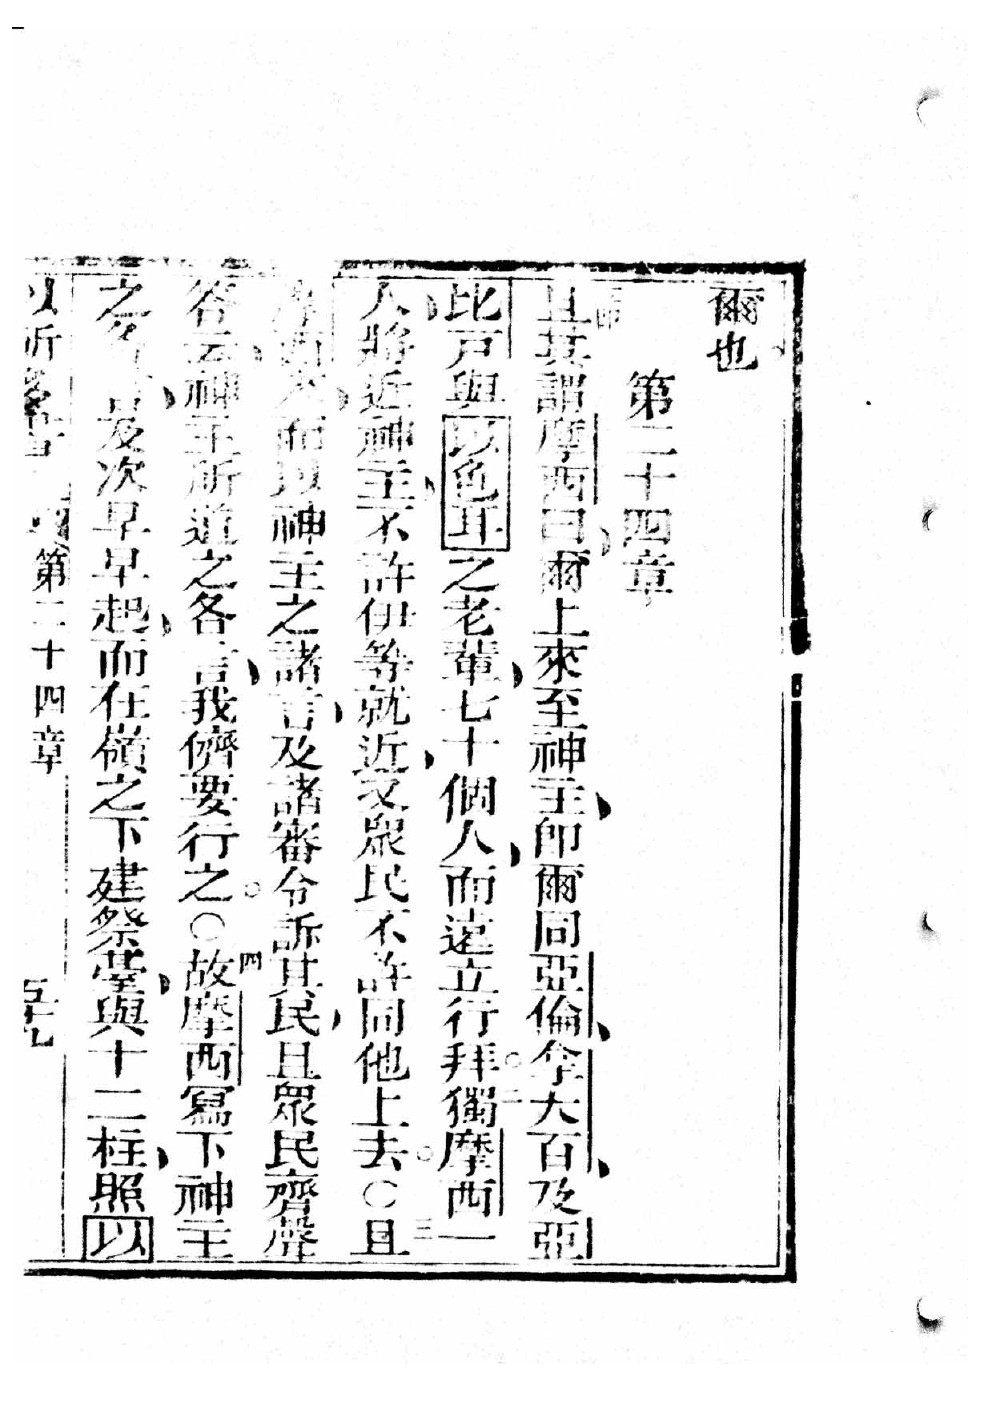 爾也
第二十四章
且其謂摩西曰爾上來至神主即爾同亞倫拿大百及亞
比戸與以色耳之老輩七十個人而遠立行拜二獨摩西一
人將近神主不許伊等就近又眾民不許同他上去○三且
西而以神主之諸言及諸審令訴其民且眾民齊聲
答云神主所道之各言我儕要行之○四故摩西寫下神主
之各及次早早起而在嶺之下建祭臺與十二柱照以
第二十四章
五十九